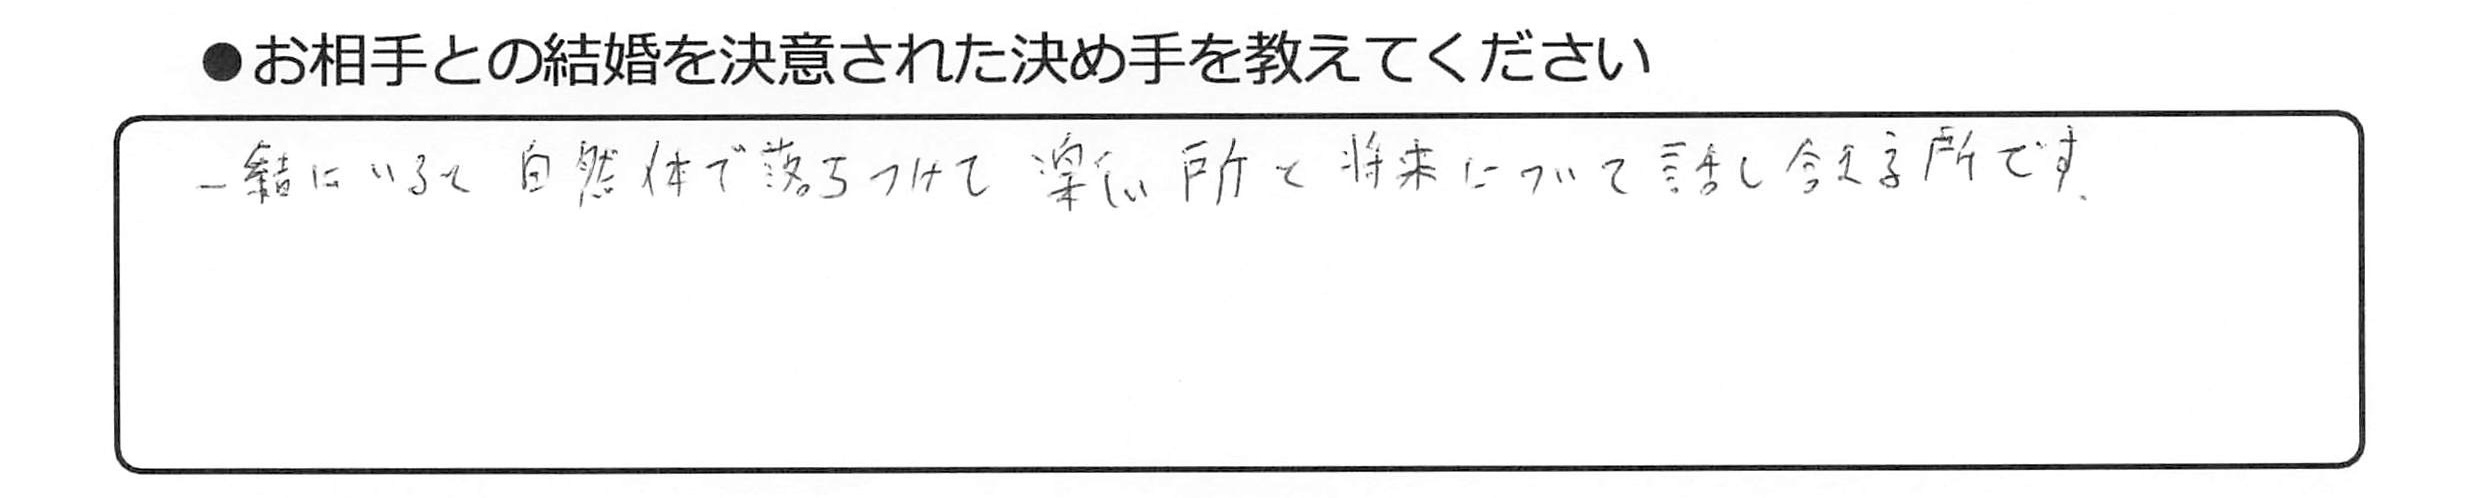 ●お相手との結婚を決意された決め手を教えてください
一緒にいると自然体で落ちつけて楽しい所と将来について話し合える所です。